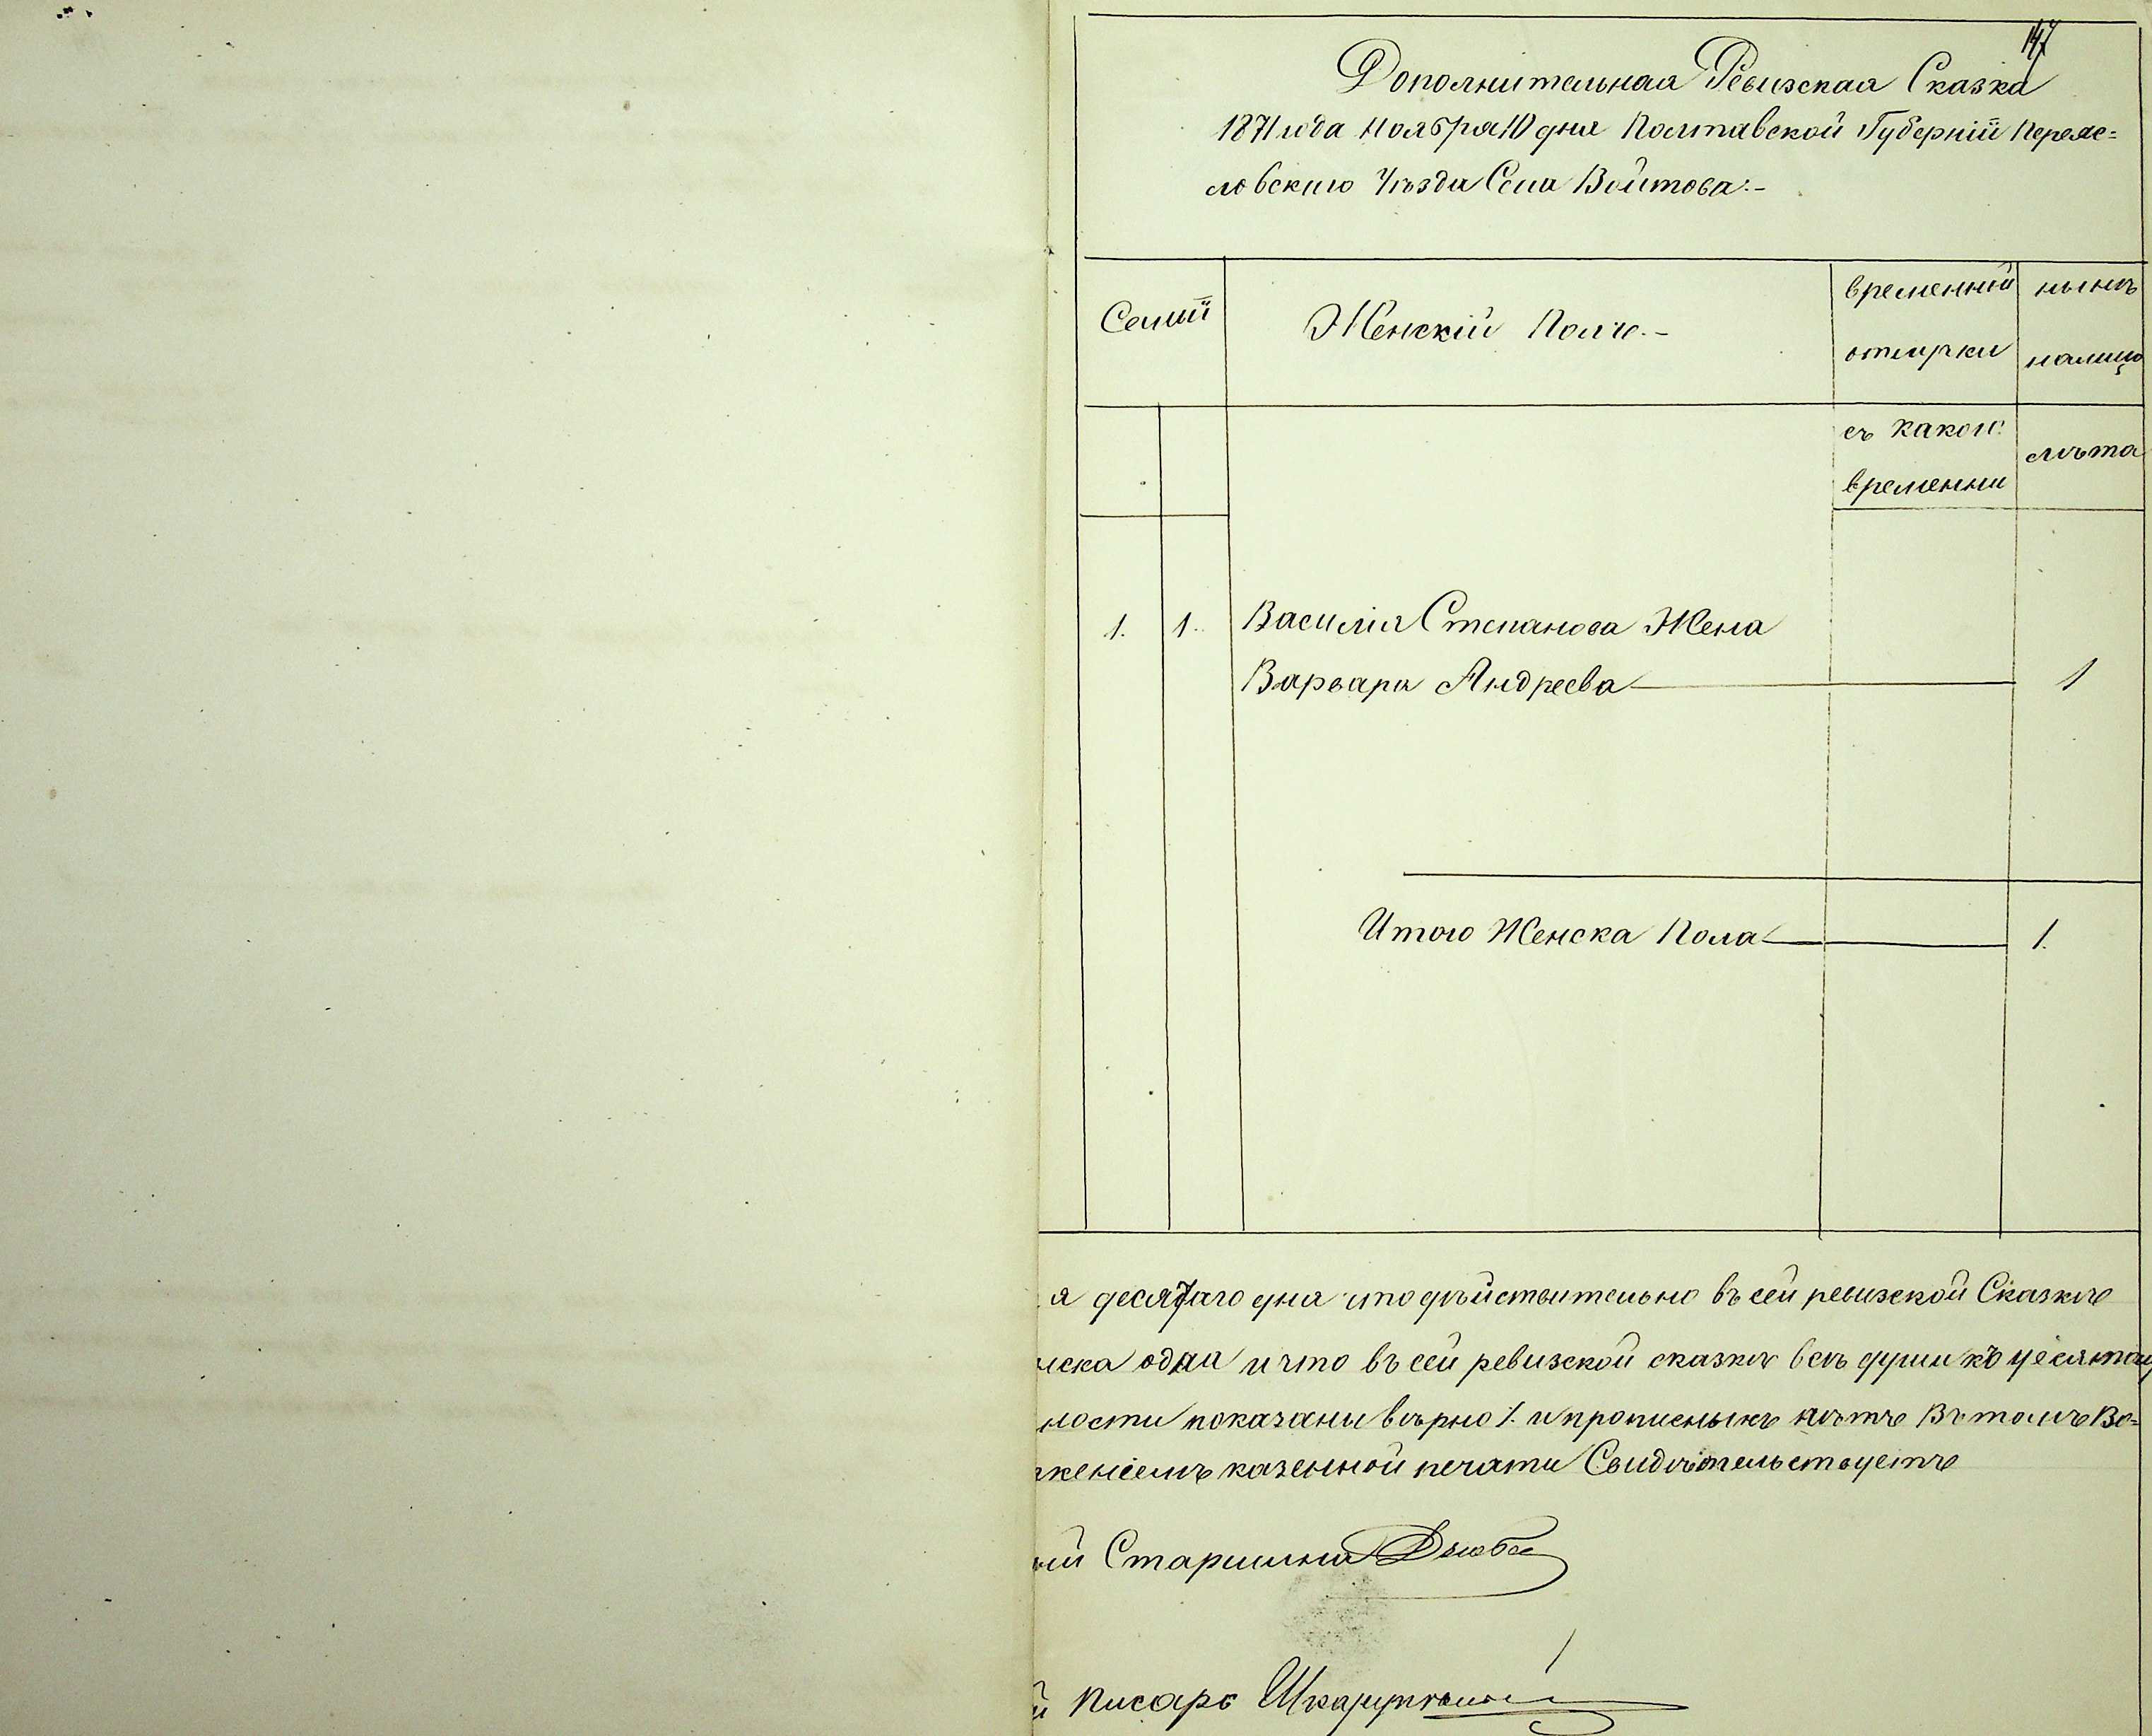 147
Дополнительная Ревизская Сказка
1871 года Ноября 10 дня Полтавской Губерніи Переяс=
ловскаго Уѣзда Села Войтова:-
Семіи
Женскій Полъ.-
временній
отлучки
нынѣ
налицо
съ какого
временни
лѣта
1. 1. Василія Степанова Жена
Варвара Андреева 1
Итого Женска Пола 1.
я десятаго дня что дѣйствительно въ сей ревизской Сказкѣ
нска одна и что въ сей ревизской сказкѣ всѣ души къ десятой
ности показаны вѣрно % и прописныхъ нѣтъ въ томъ Во=
женіемъ казенной печати Свидѣтельствуетъ
ый Старшина Дзюба
й писарь